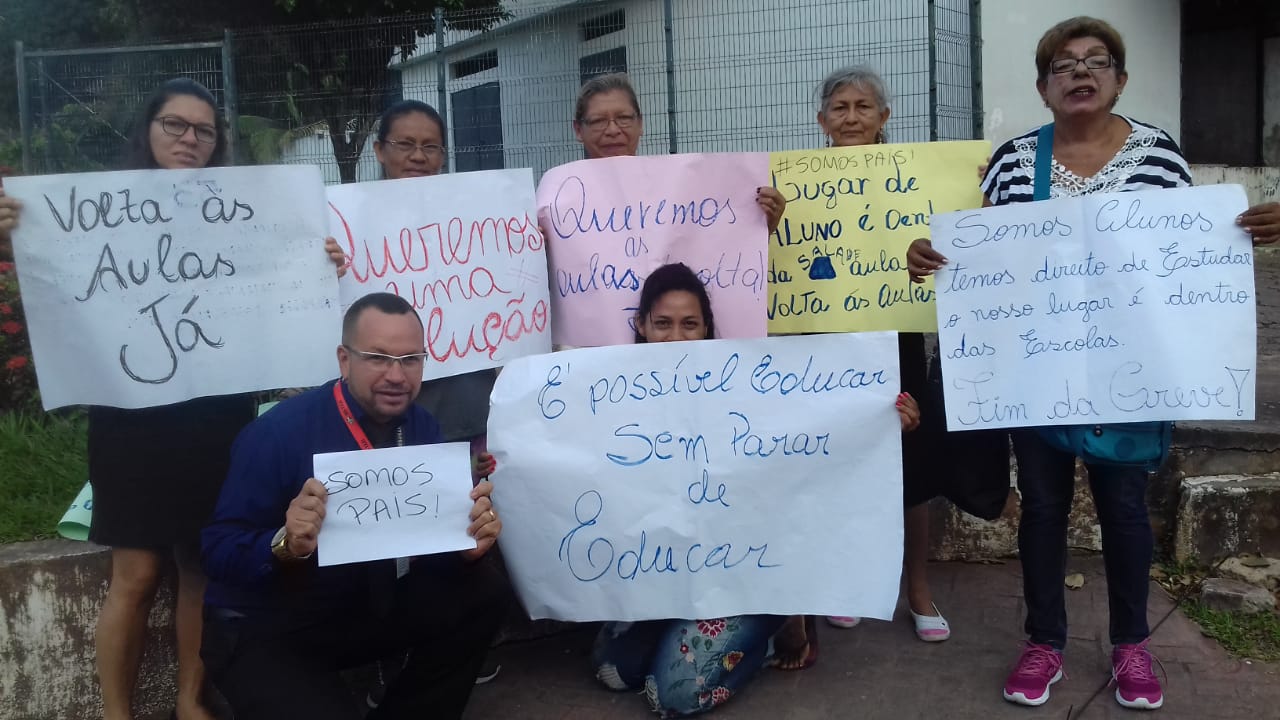 Volta às
Aulas
Já
Queremos
uma #
Queremos
as
aulas
#SOMOS PAIS!
Lugar de
ALUNO é Den!
SALA DE
da aula
Volta ás Aulas
Somos Alunos
temos direito de Estudar
o nosso lugar é dentro
das Escolas.
Fim da Greve!
SOMOS
PAIS!
É possível Educar
Sem Parar
de
Educar